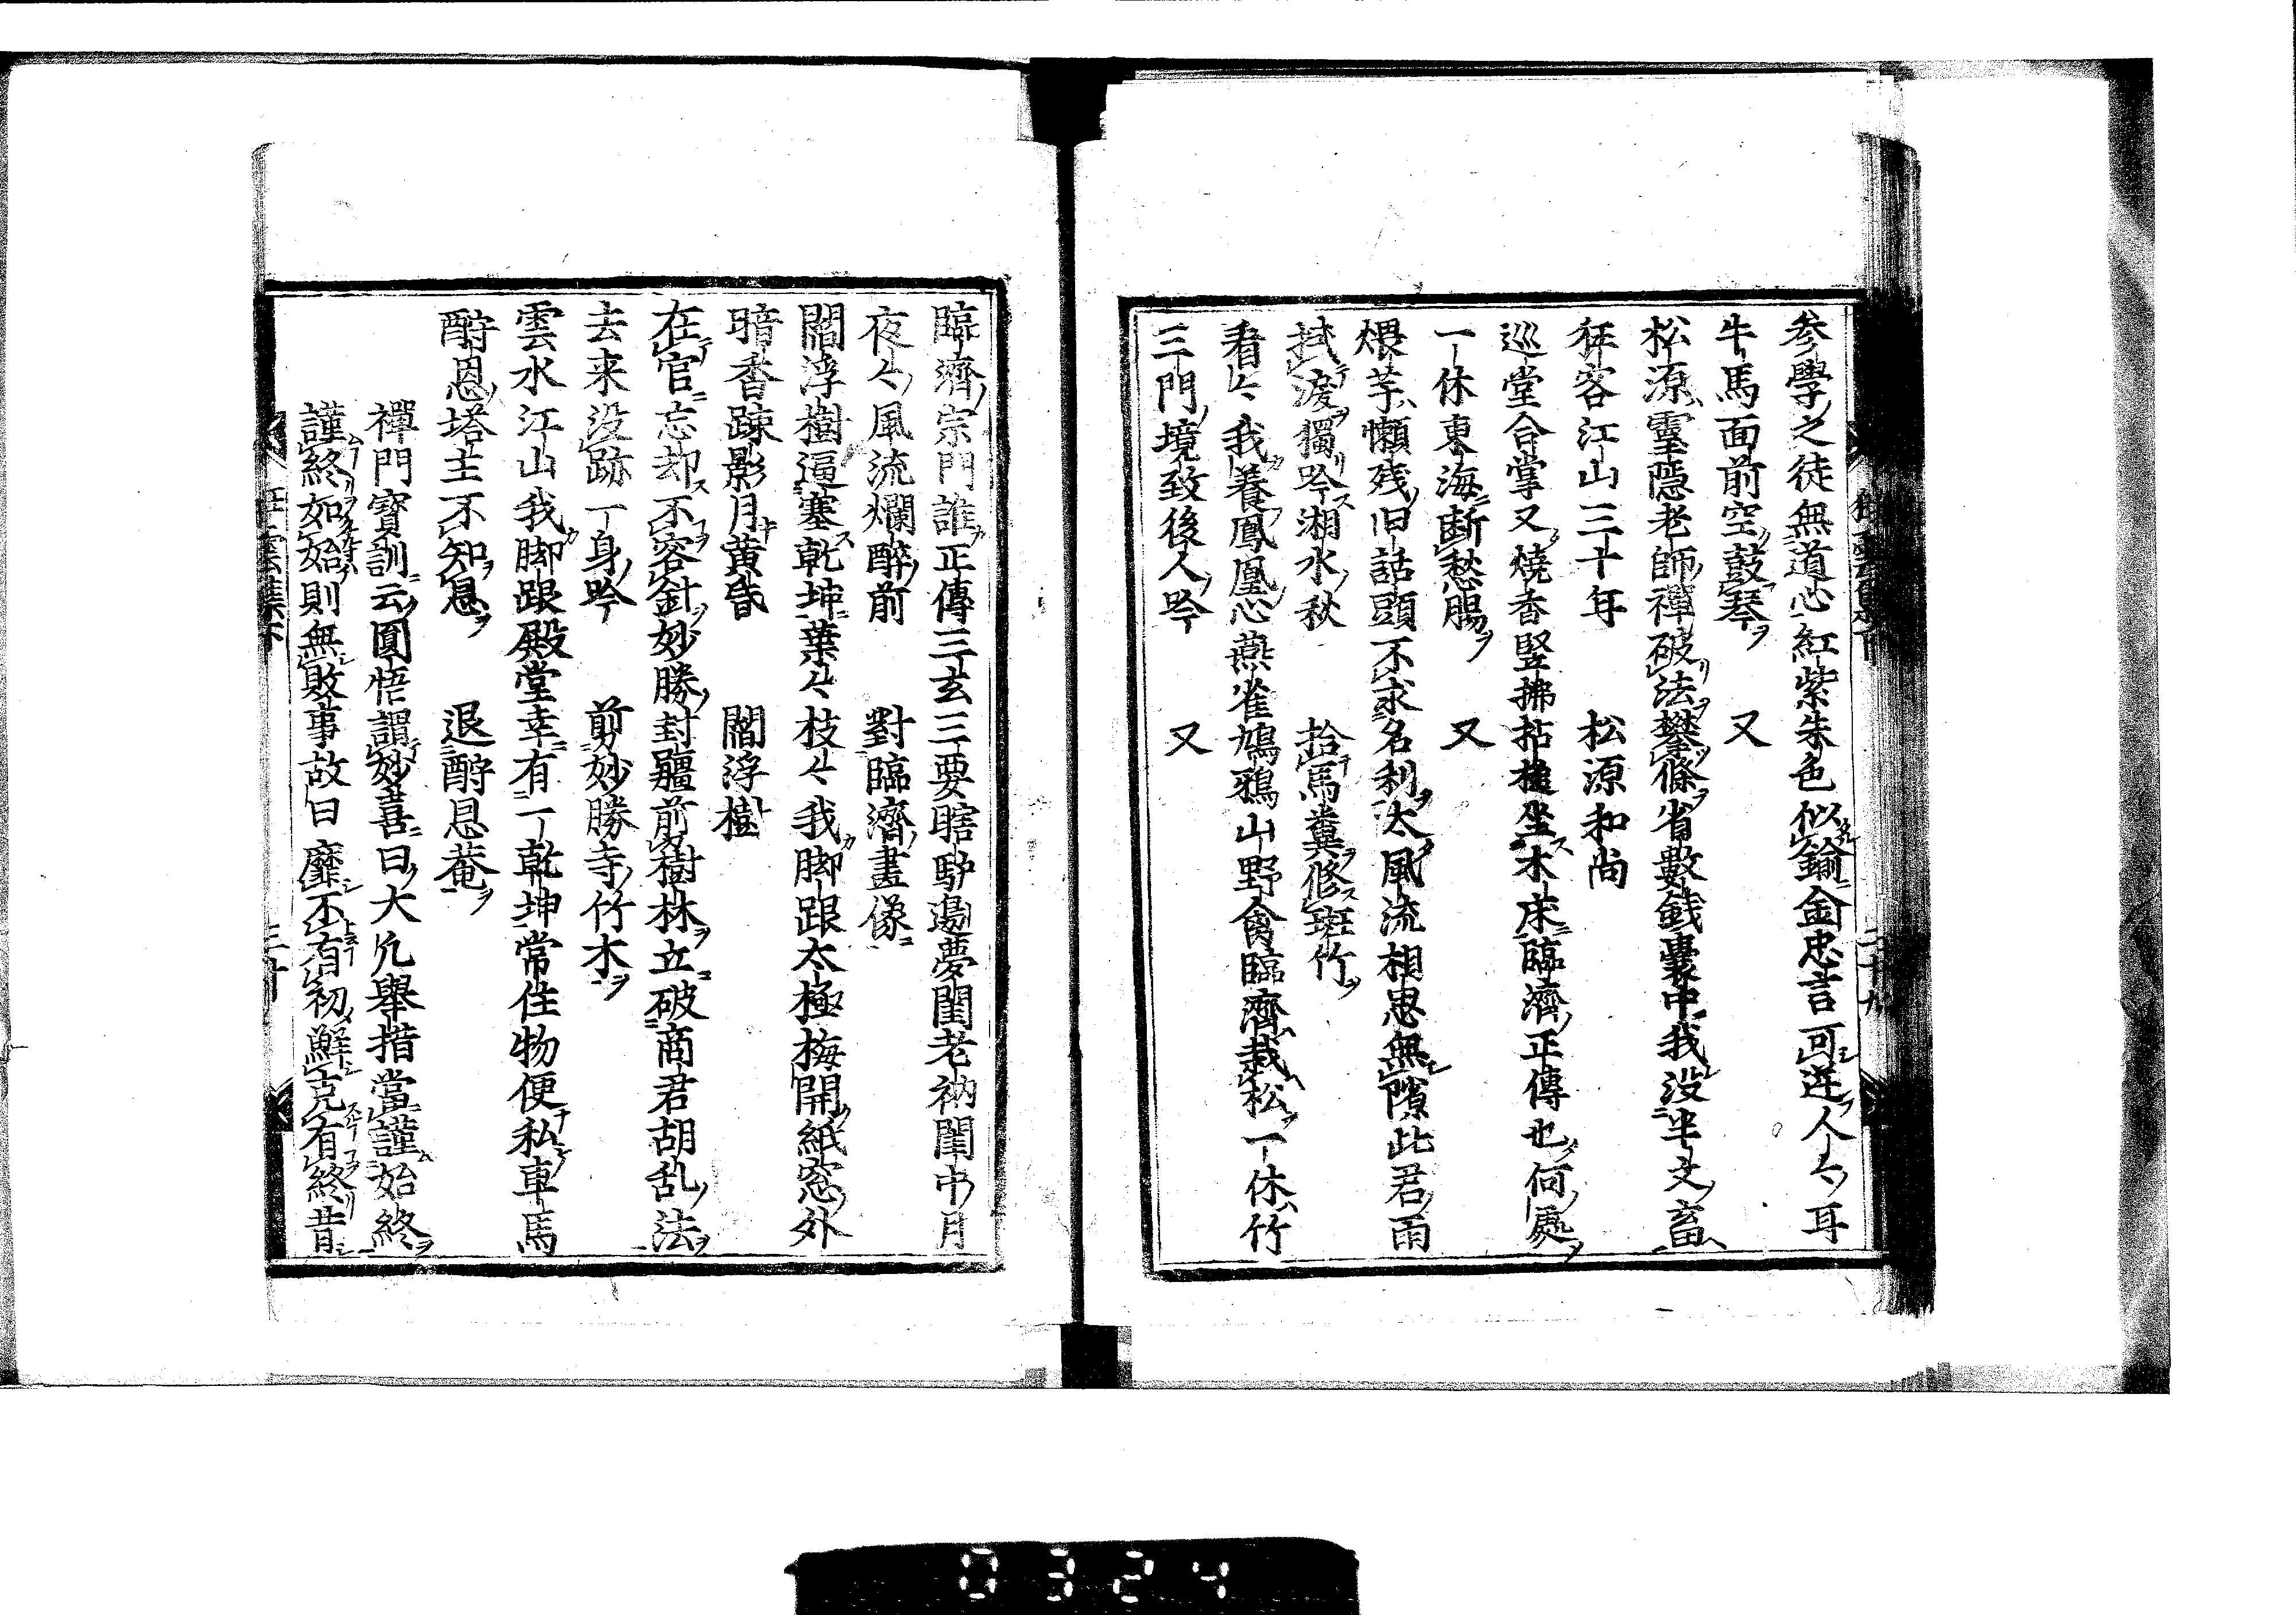 参學之徒無道心紅紫朱色似鍮金忠言可逆人〻耳
牛馬面前空鼓琴　又
松源靈隱老師禪破法鏧條省數錢囊中我没半文畜
狂客江山三十年　松源和尚
巡堂合掌又燒香竪拂拈槌坐木床臨濟正傳也何處
一休東海断愁腸　又
煨芋懶残旧話頭不求名利太風流相思無隙此君雨
拭涙獨吟湘水秋　拾馬糞修斑竹
看〻我養鳳凰心燕雀鳩鴉山野禽臨濟栽松一休竹
三門境致後人吟　又
臨濟宗門誰正傳三玄三要瞎驢邉夢閨老衲閨中月
夜〻風流爛醉前　對臨濟畫像
閻浮樹逼塞乾坤葉〻枝〻我脚跟太極梅開紙窓外
暗香踈影月黄昏　閻浮樹
在官忘却不容針妙勝封疆前樹林立破商君胡乱法
去来没跡一身吟　剪妙勝寺竹木
雲水江山我脚跟殿堂幸有一乾坤常住物便私車馬
酧恩塔主不知恩　退酧恩菴
禪門寶訓云圓悟謂妙喜曰大凢舉措當謹始終
謹終如始則無敗事故曰靡不有初鮮克有終昔
狂雲集下
三十
0324